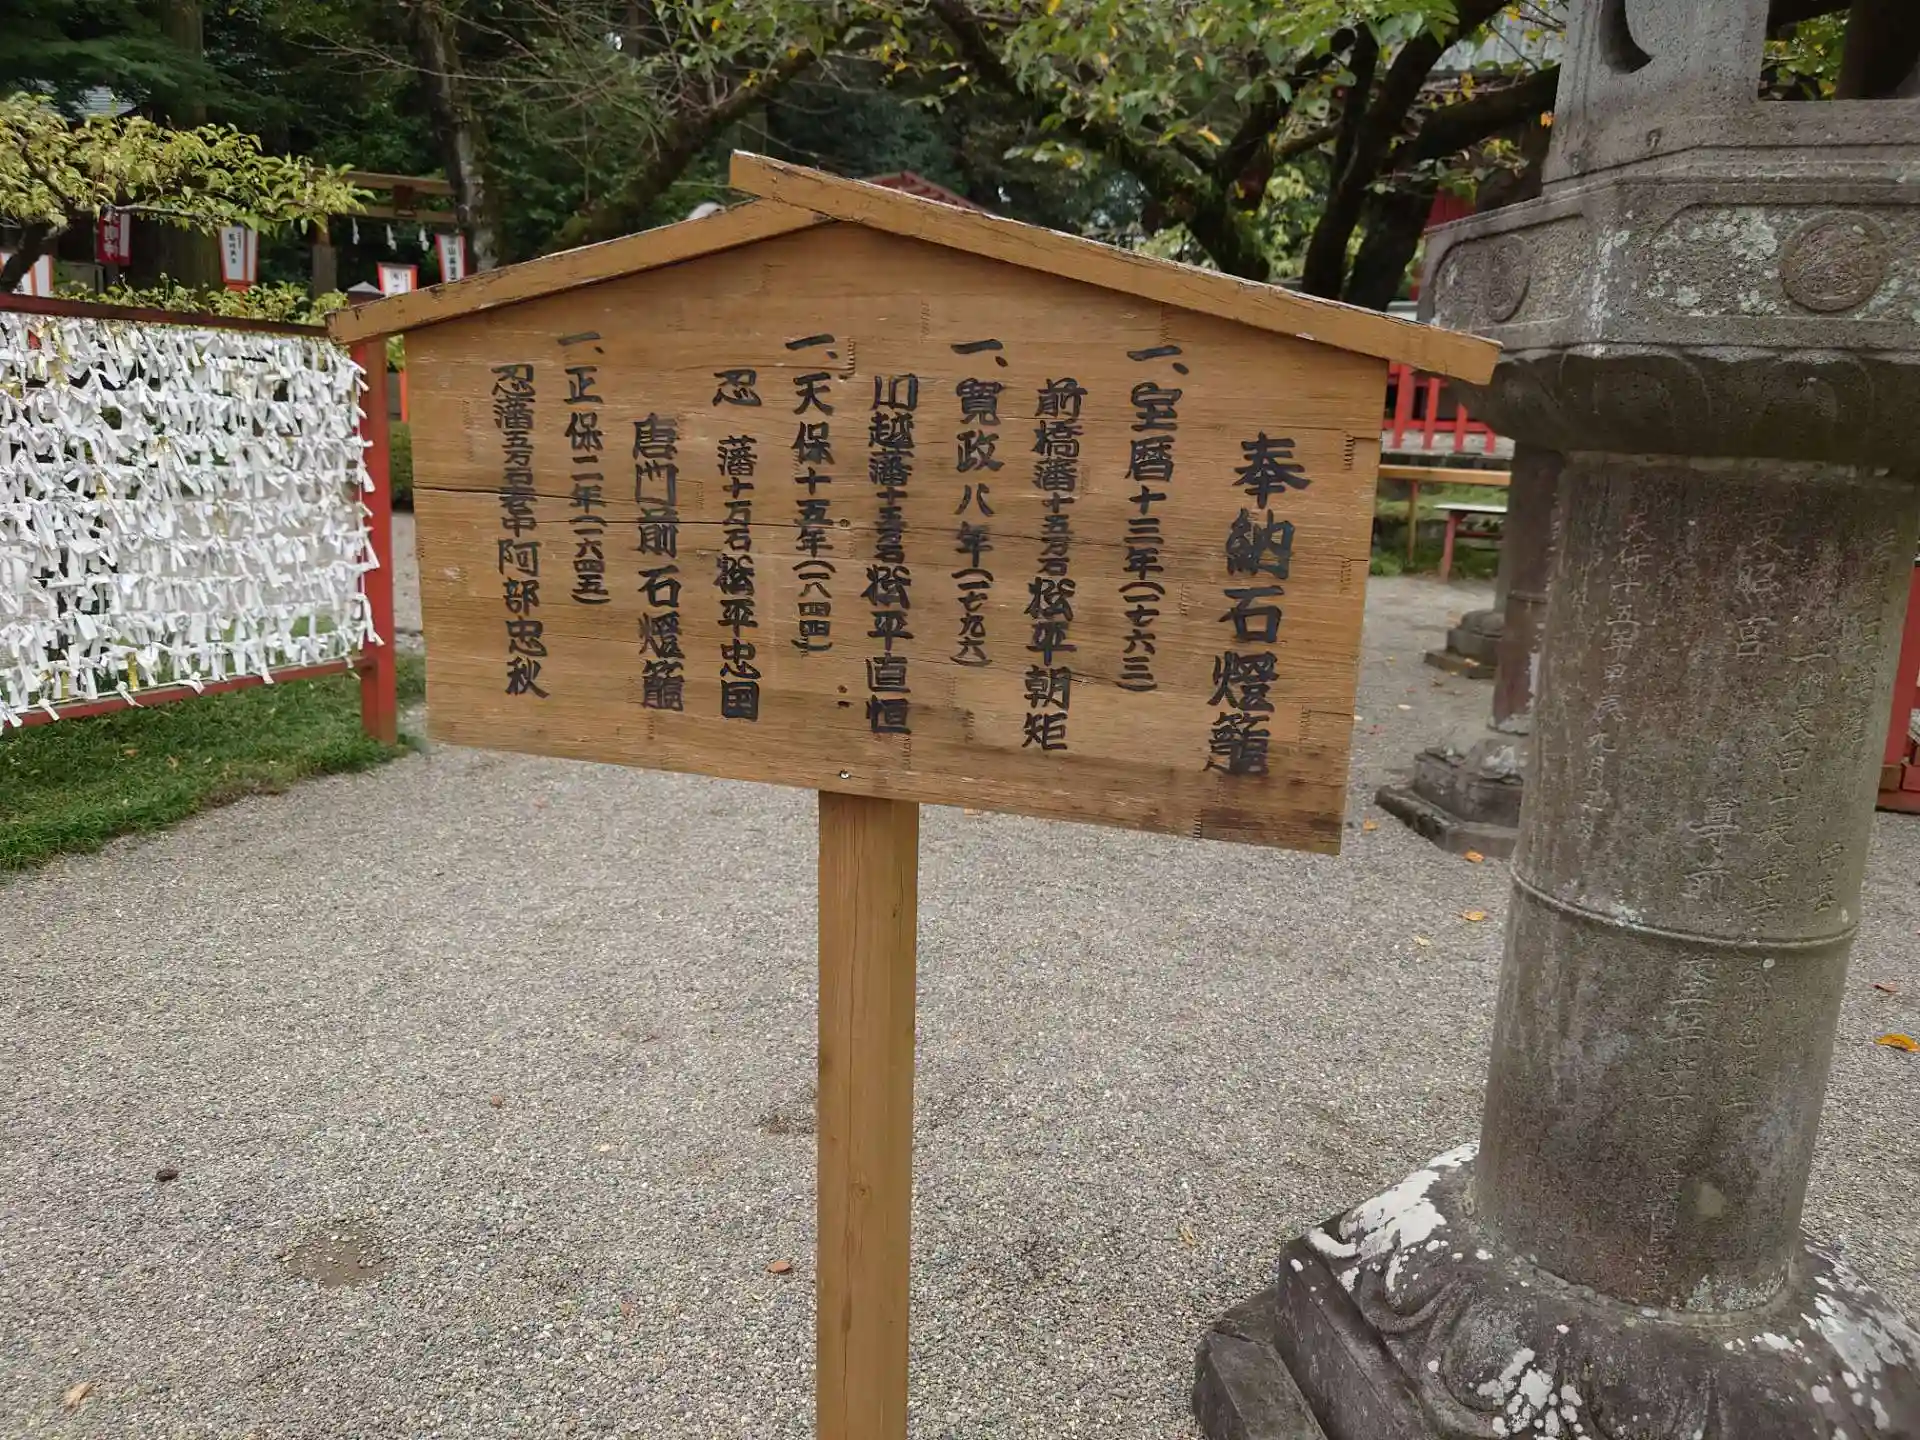 奉納石燈籠
一、宝暦十三年(一七六三)
前橋藩十五万石松平朝矩
一、寛政八年(一七九六)
川越藩十五万石松平直恒
一、天保十五年(一八四四)
忍 藩十万石松平忠国
唐門前石燈籠
一、正保二年(一六四五)
忍藩五万石老中阿部忠秋
尊前
天保十五年甲辰九月